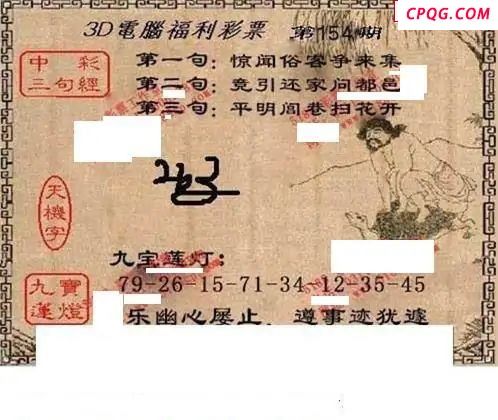 CPQG.COM
3D電腦福利彩票 第154期
中彩三句經
第一句：惊闻俗客争来集
第二句：竞引还家问都邑
第三句：平明闾巷扫花开
天機字
九宝莲灯：
九寶蓮燈
79-26-15-71-34 12-35-45
乐幽心屡止，遵事迹犹遽